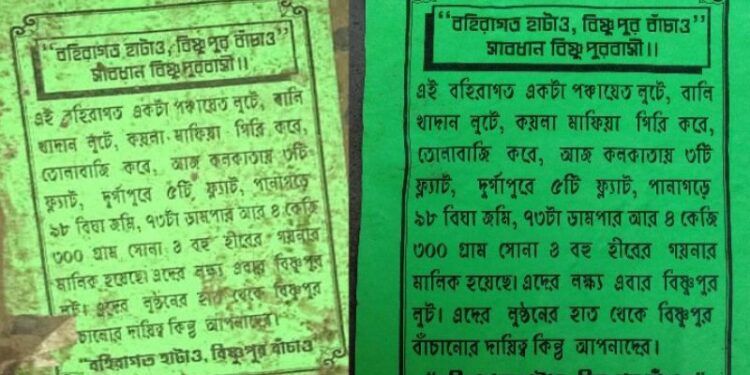 "বহিরাগত হাটাও, বিষ্ণুপুর বাঁচাও"
সাবধান বিষ্ণুপুরবাসী।।
এই বহিরাগত একটা পঞ্চায়েত লুটে, বালি
খাদান লুটে, কয়লা মাফিয়া গিরি করে,
তোলাবাজি করে, আজ কলকাতায় ৩টি
ফ্ল্যাট, দুর্গাপুরে ৫টি ফ্ল্যাট, পানাগড়ে
৯৮ বিঘা জমি, ৭৩টা ডামপার আর ৪ কেজি
৩০০ গ্রাম সোনা ও বহু হীরের গয়নার
মালিক হয়েছে। এদের লক্ষ্য এবার বিষ্ণুপুর
লুট। এদের লুন্ঠনের হাত থেকে বিষ্ণুপুর
চানোর দায়িত্ব কিন্তু আপনাদের।
"বহিরাগত হাটাও, বিষ্ণুপুর বাঁচাও
"বহিরাগত হাটাও, বিষ্ণুপুর বাঁচাও"
সাবধান বিষ্ণুপুরবাসী।।
এই বহিরাগত একটা পঞ্চায়েত লুটে, বালি
খাদান লুটে, কয়লা মাফিয়া গিরি করে,
তোলাবাজি করে, আজ কলকাতায় ৩টি
ফ্ল্যাট, দুর্গাপুরে ৫টি ফ্ল্যাট, পানাগড়ে
৯৮ বিঘা জমি, ৭৩টা ডামপার আর ৪ কেজি
৩০০ গ্রাম সোনা ও বহু হীরের গয়নার
মালিক হয়েছে। এদের লক্ষ্য এবার বিষ্ণুপুর
লুট। এদের লুন্ঠনের হাত থেকে বিষ্ণুপুর
বাঁচানোর দায়িত্ব কিন্তু আপনাদের।